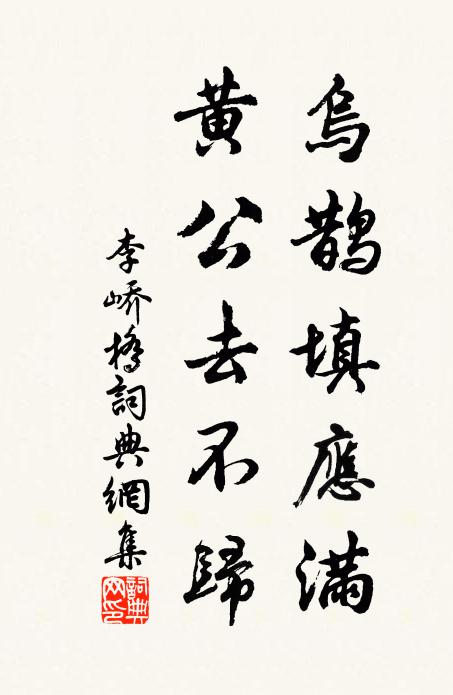 烏鵲填應滿
黃公去不歸
李嶠橋詞典網集
詞典網印